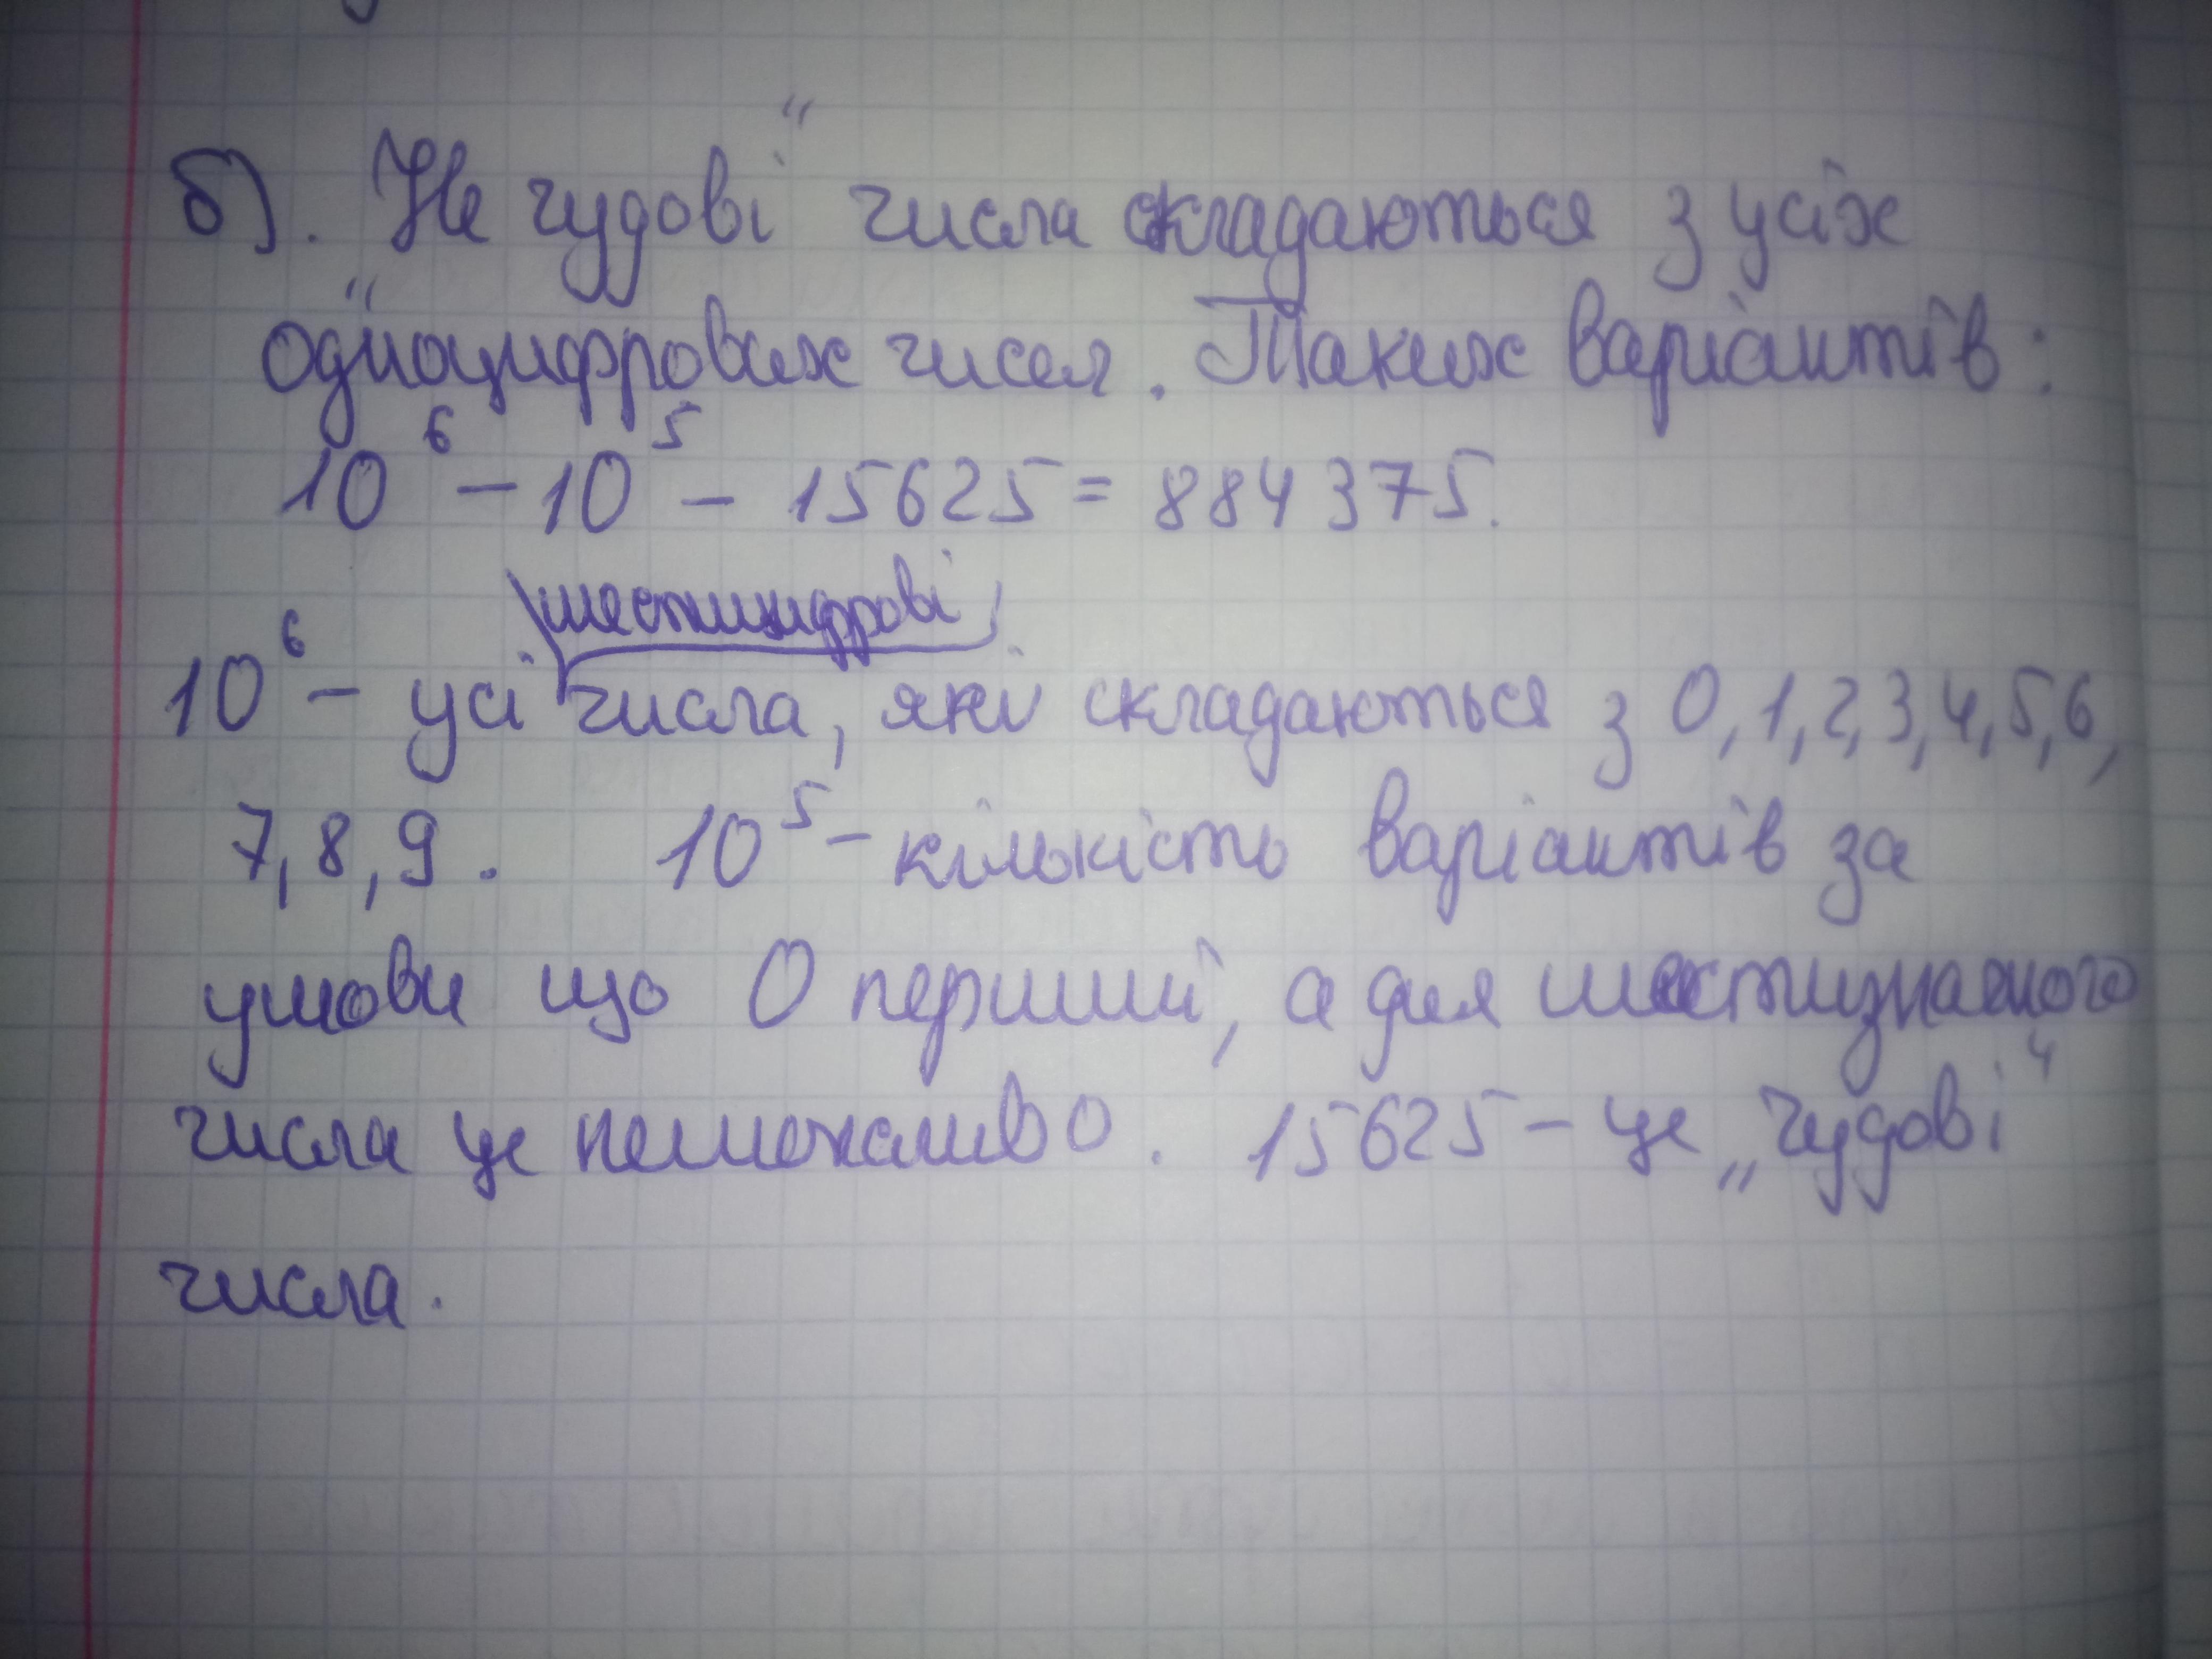 б). "Не чудові" числа складаються з усіх
одноцифрових чисел. Таких варіантів:
10⁶ - 10⁵ - 15625 = 884375.
шестицифрові
10⁶ - усі числа, які складаються з 0, 1, 2, 3, 4, 5, 6,
7, 8, 9. 10⁵ - кількість варіантів за
умови що 0 перший, а для шестизначного
числа це неможливо. 15625 - це „чудові"
числа.